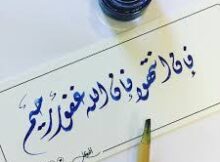 فإن انتهوا فإن الله غفور رحيم